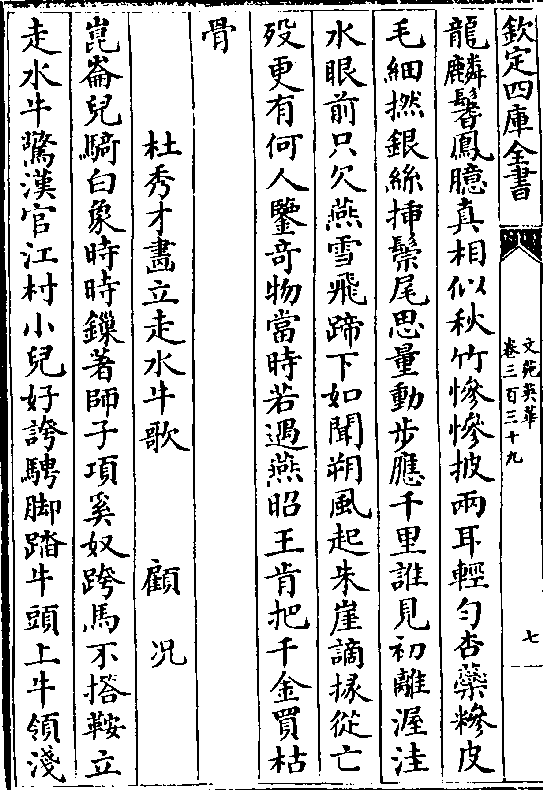 欽定四庫全書
文苑英華
卷三百三十九
七
龍麟鬐鳳臆真相似秋竹慘慘披兩耳輕勻杏蘂糝皮
毛細撚銀絲揷鬃尾思量動步應千里誰見初離渥洼
水眼前只欠燕雪飛蹄下如聞朔風起朱崖謫掾從亡
歿更有何人鑒竒物當時若遇燕昭王肯把千金買枯
骨
杜秀才畫立走水牛歌 顧況
崑崙兒騎白象時時鏁著師子項奚奴跨馬不搭鞍立
走水牛驚漢官江村小兒好誇騁脚踏牛頭上牛領淺